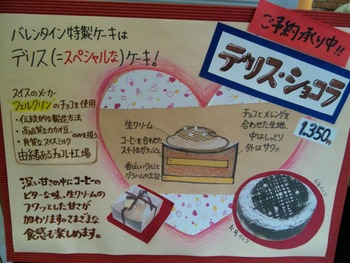 バレンタイン特製ケーキは
デリス(=スペシャルな)ケーキ!
ご予約承り中!!
デリス・ショコラ
1,350円
スイスのメーカー
フェルクリンのチョコを使用
・伝統的な製造方法
・高品質なカカオ豆
・良質なスイスミルク
由緒あるチョコレート工場
生クリーム
コーヒーを含ませた
スイートなガナッシュ。
香ばしいクルミと
グラハムの土台
チョコとメレンゲを
合わせた生地、
中はしっとり
外はサクッ。
深い甘さの中にコーヒーの
ビターな味、生クリームの
フワッとした甘さが
加わります。さまざまな
食感も楽しめます。